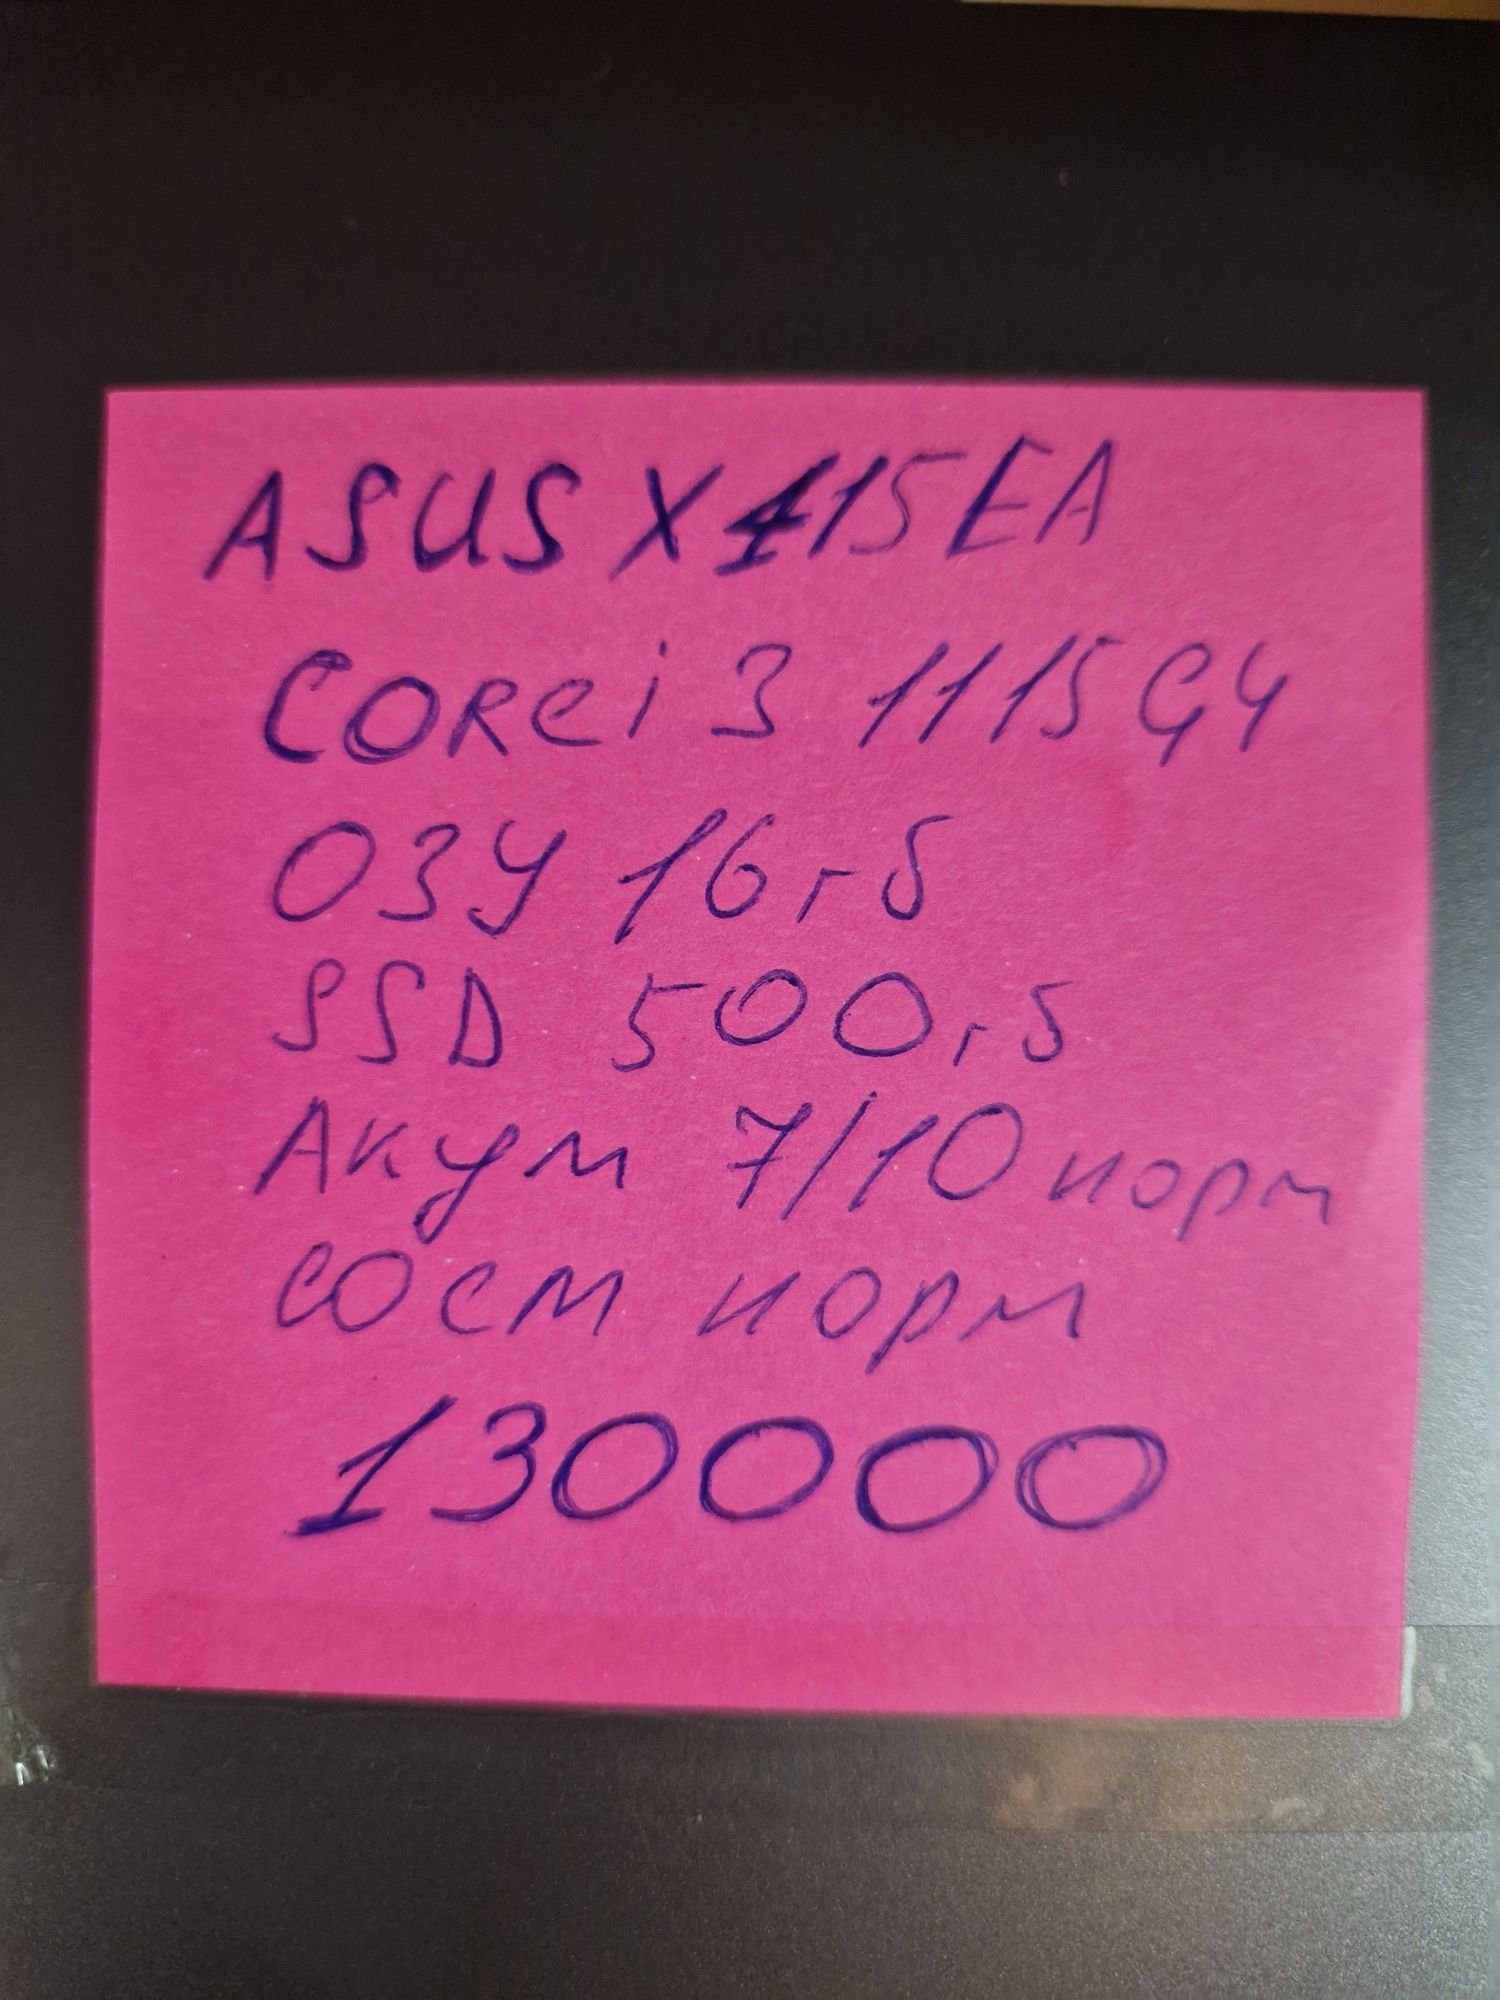 ASUS X415EA
Corei3 1115G4
ОЗУ 16гб
SSD 500гб
Акум 7/10 норм
сост норм
130000